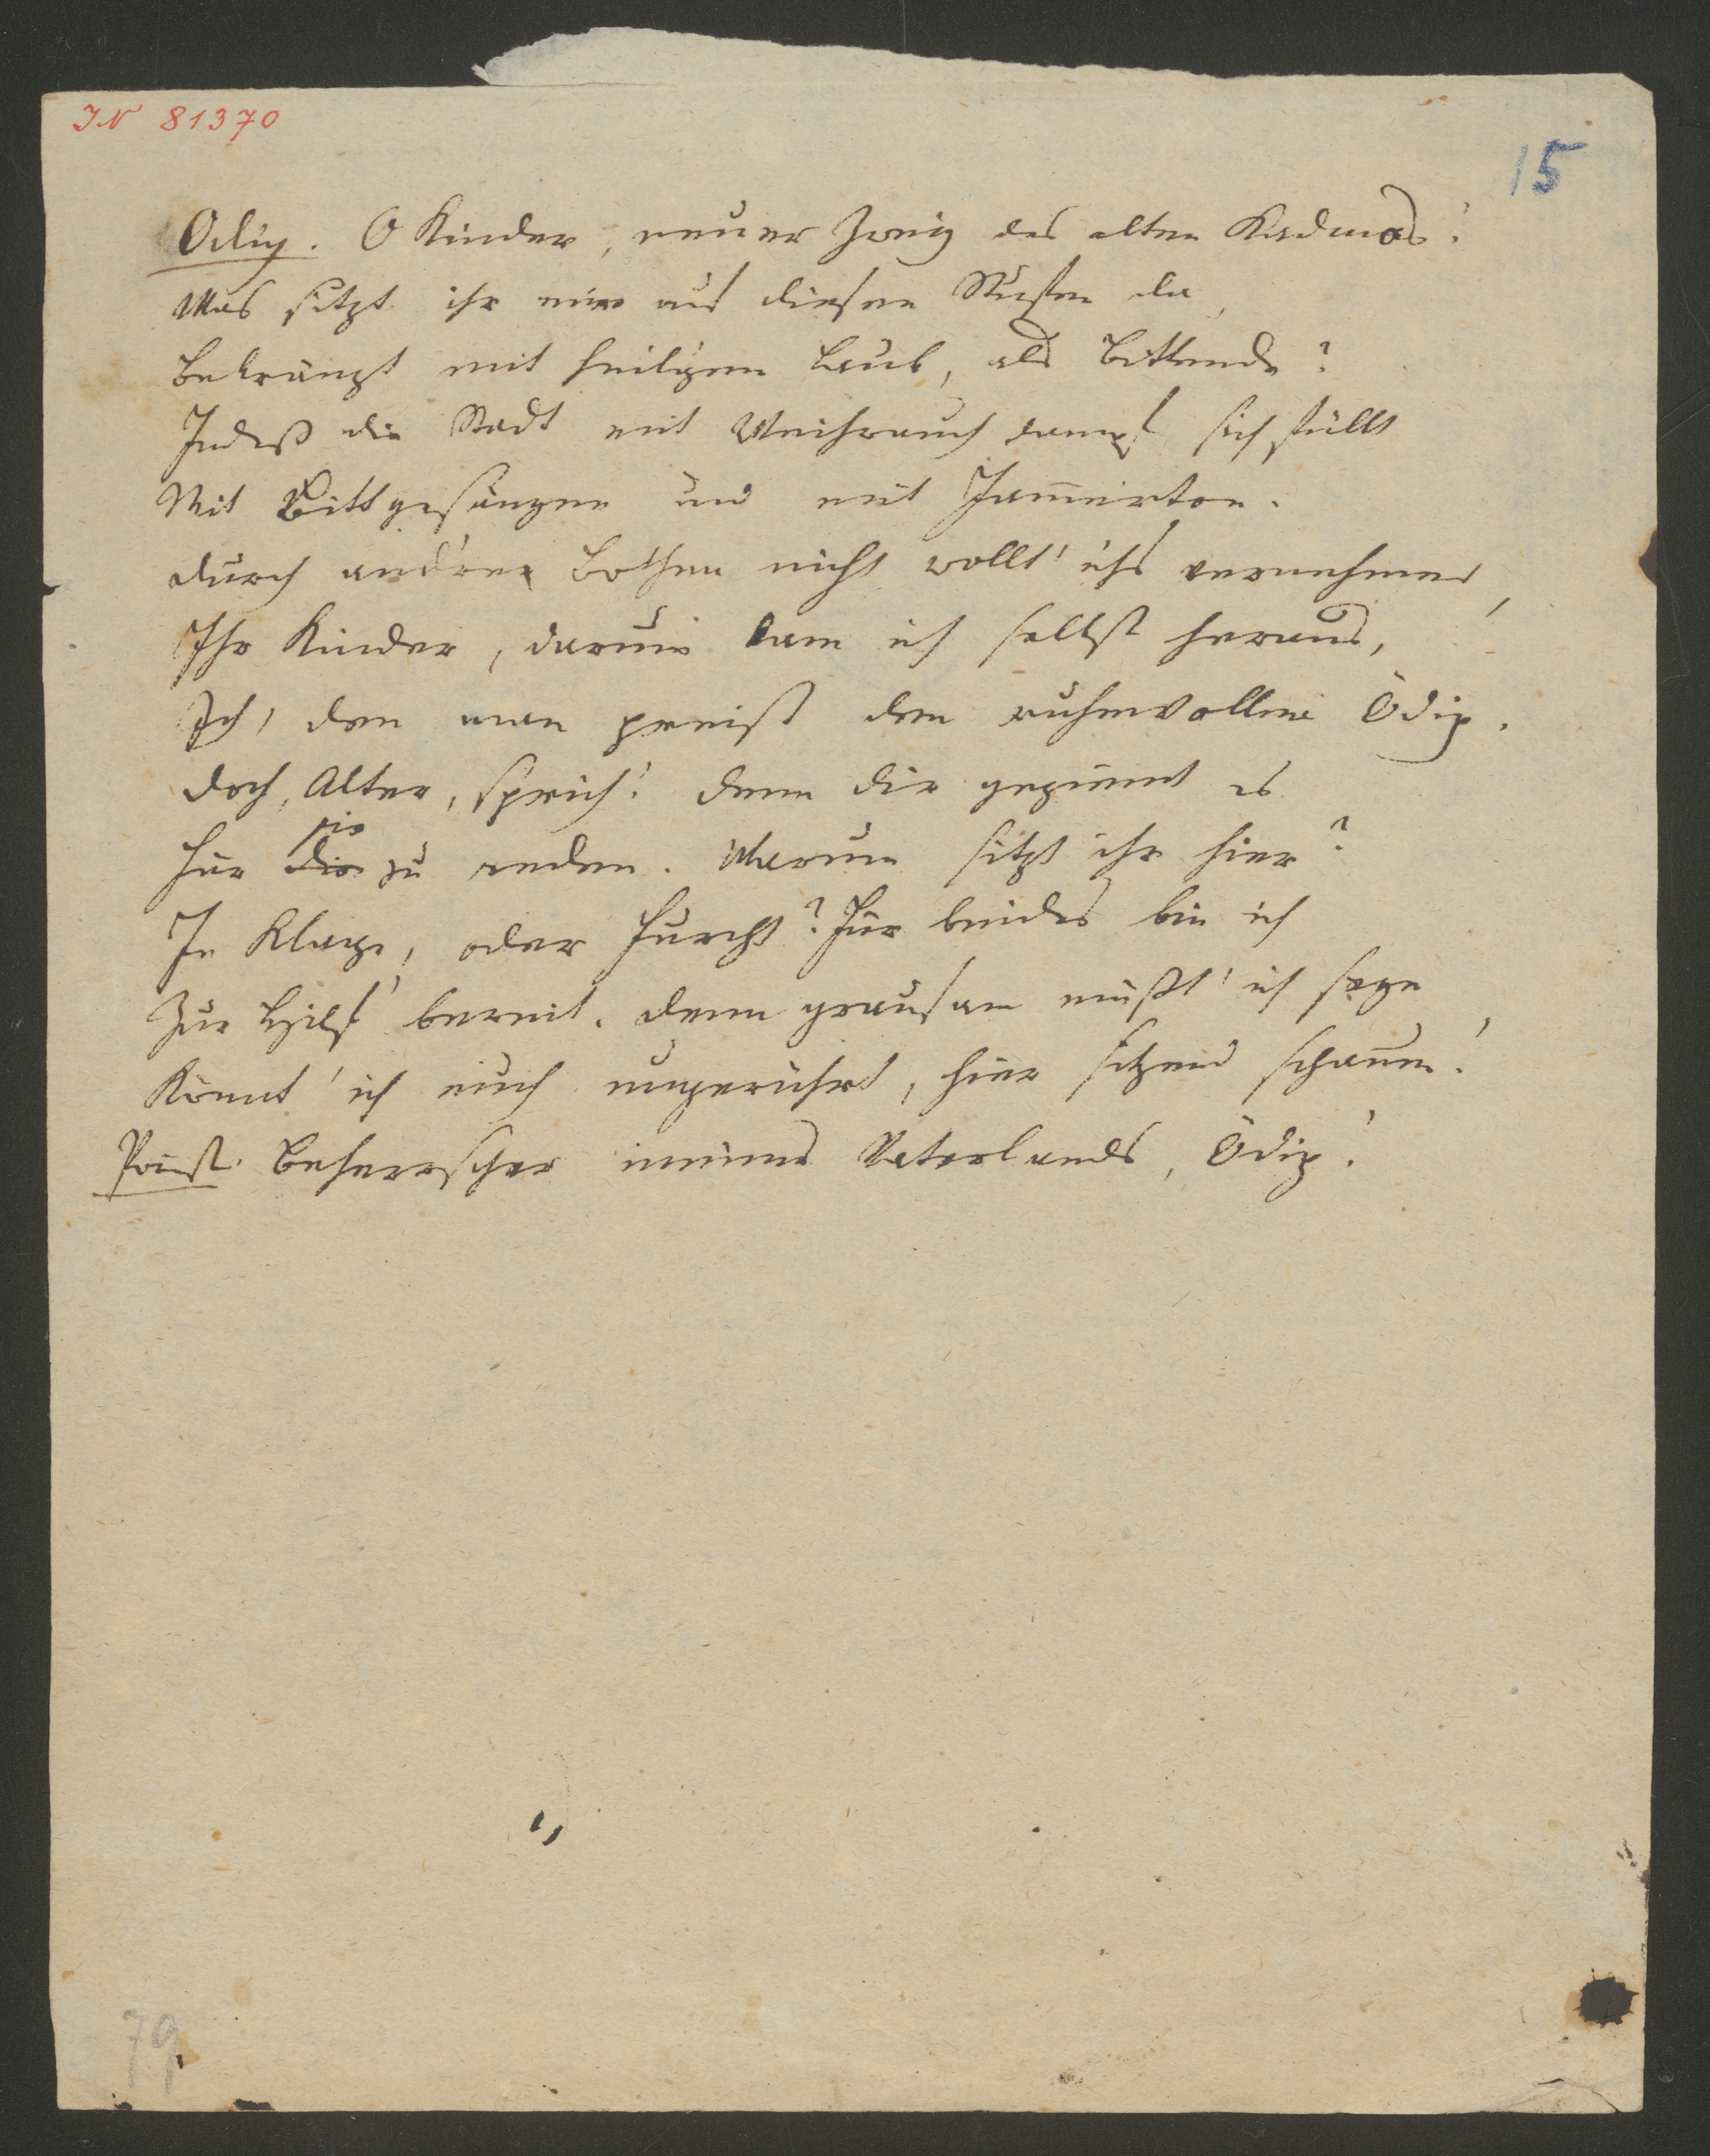 IN 81370
15
Ödip. O Kinder, neuer Zweig des alten Kadmos!
Was sitzt ihr mir auf diesen Stufen da,
Bekränzt mit heilgem Laub, als Bittende?
Indeß die Stadt mit Weihrauchdampf sich füllt
Mit Bittgesängen und mit Jam̅erton.
Durch andre Bothen nicht wollt' ichs vernehmen,
Ihr Kinder, darum kam ich selbst heraus,
Ich, den man preist den ruhmvollen Ödip.
Doch, Alter, sprich! denn dir geziemt es
sie
Für die zu reden. Warum sitzt ihr hier?
In Klage, oder Furcht? Für beides bin ich
Zur Hilf' bereit. Denn grausam müßt' ich seyn
Könnt' ich euch ungerührt, hier sitzend schauen!
Priest. Beherrscher meines Vaterlands, Ödip!
79